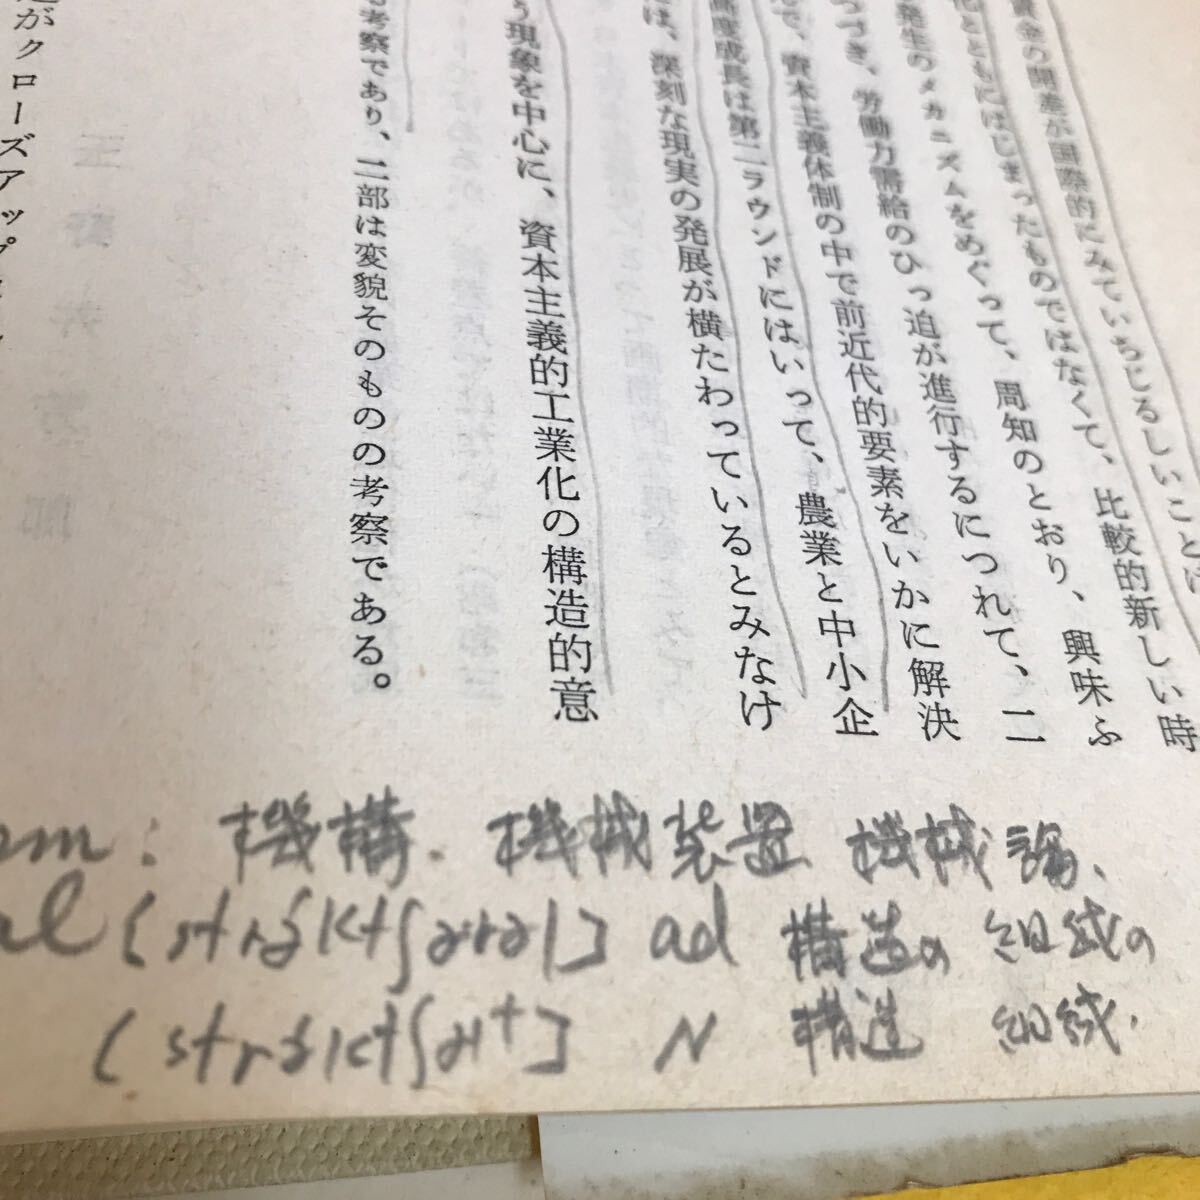 賃金の開差が国際的にみていちじるしいことは
化とともにはじまったものではなくて、比較的新しい時
発生のメカニズムをめぐって、周知のとおり、興味ふ
つづき、労働力需給のひっ迫が進行するにつれて、二
で、資本主義体制の中で前近代的要素をいかに解決
高度成長は第二ラウンドにはいって、農業と中小企
は、深刻な現実の発展が横たわっているとみなけ
う現象を中心に、資本主義的工業化の構造的意
考察であり、二部は変貌そのものの考察である。
がクローズアップ
機構. 機械装置 機械論.
ad 構造の 組織の
N 構造 組織.